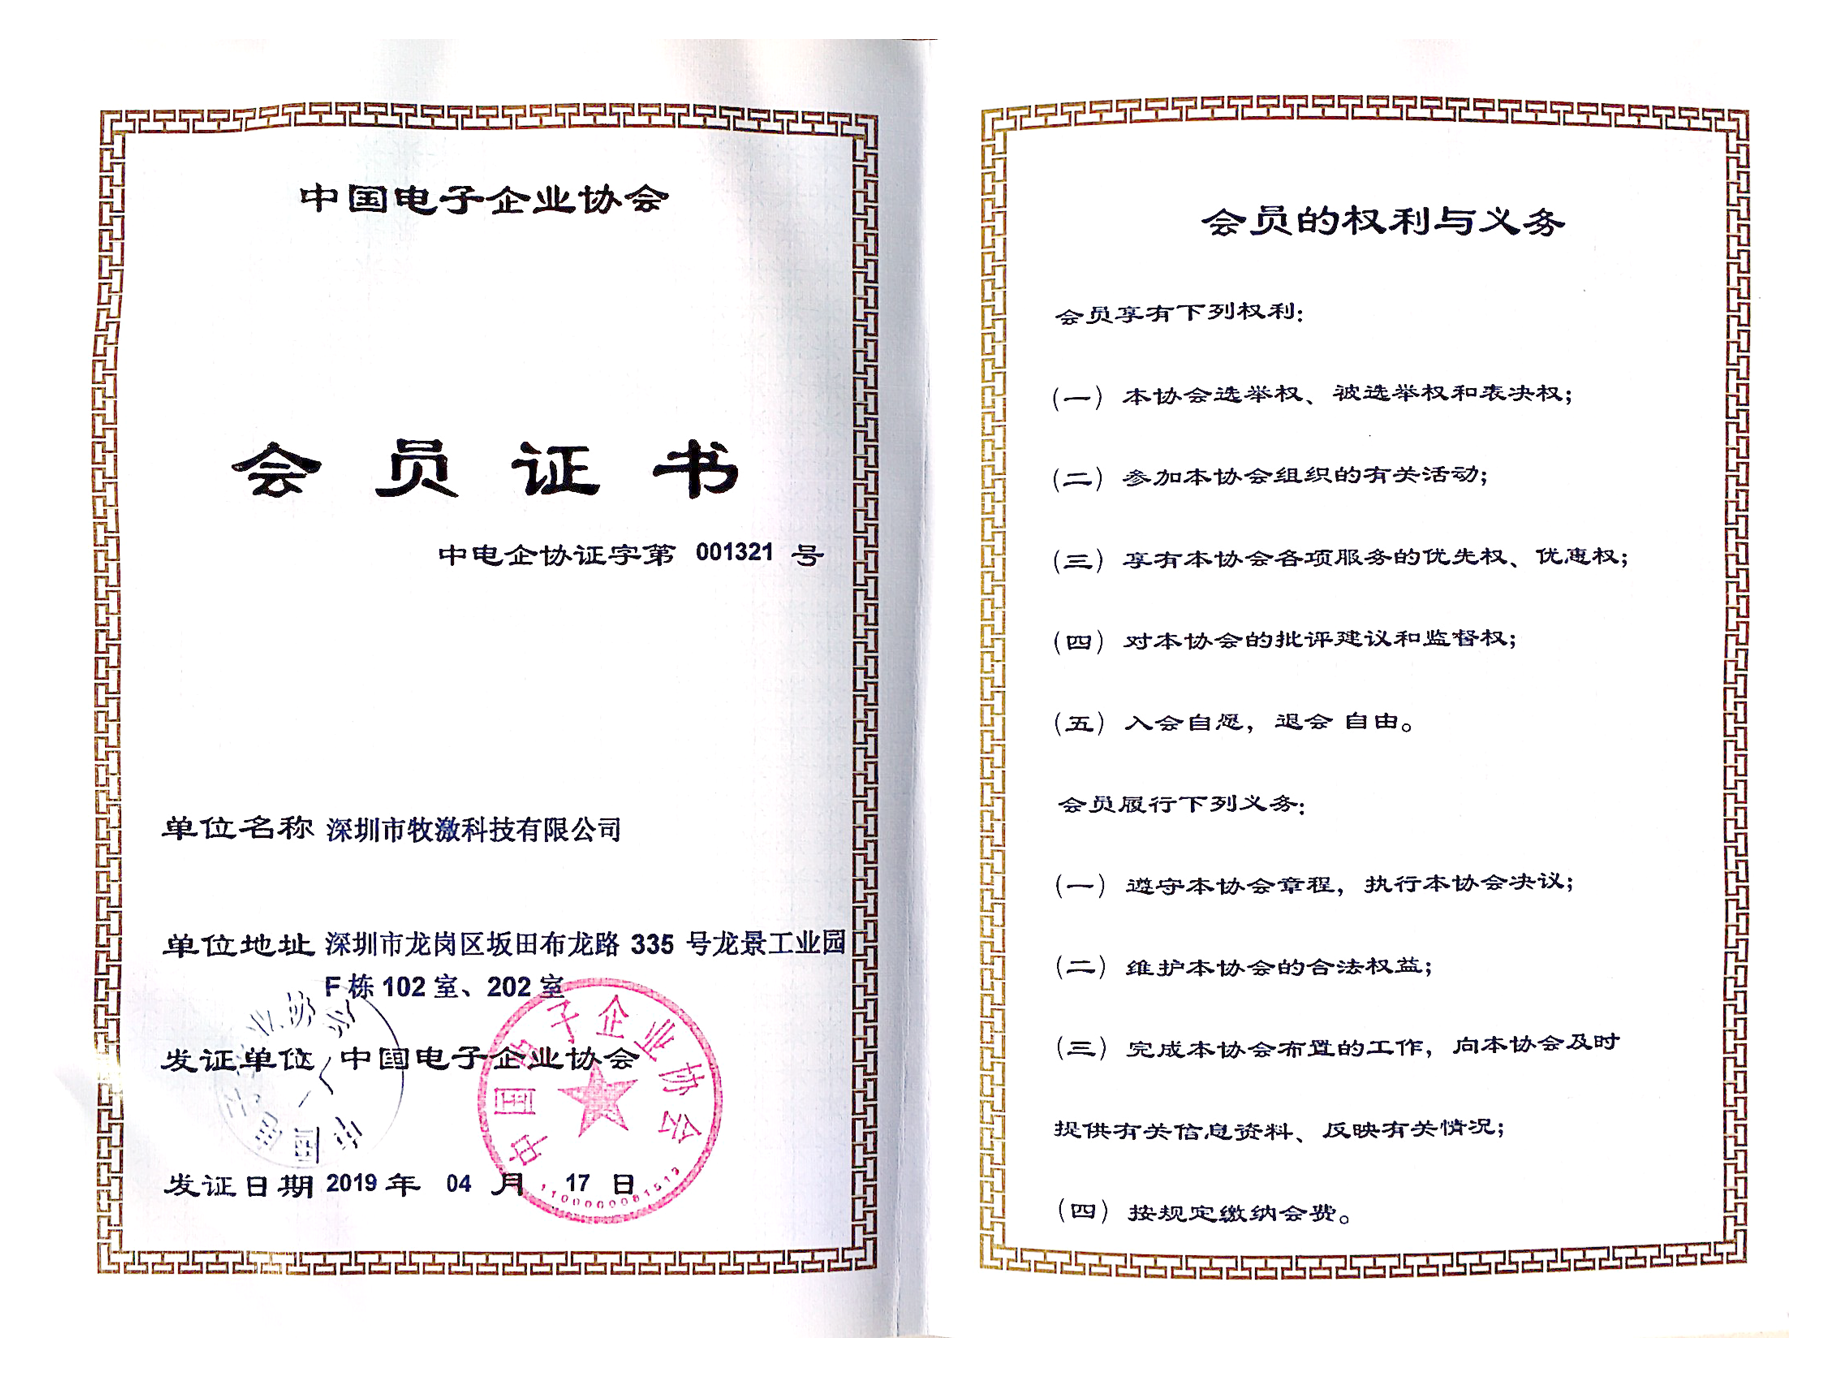 中国电子企业协会
会员证书
中电企协证字第 001321 号
单位名称 深圳市牧激科技有限公司
单位地址 深圳市龙岗区坂田布龙路 335 号龙景工业园
F 栋 102 室、202 室
发证单位 中国电子企业协会
发证日期 2019 年 04 月 17 日
中国电子企业协会
会员的权利与义务
会员享有下列权利:
(一) 本协会选举权、被选举权和表决权;
(二) 参加本协会组织的有关活动;
(三) 享有本协会各项服务的优先权、优惠权;
(四) 对本协会的批评建议和监督权;
(五) 入会自愿, 退会 自由。
会员履行下列义务:
(一) 遵守本协会章程, 执行本协会决议;
(二) 维护本协会的合法权益;
(三) 完成本协会布置的工作, 向本协会及时
提供有关信息资料、反映有关情况;
(四) 按规定缴纳会费。